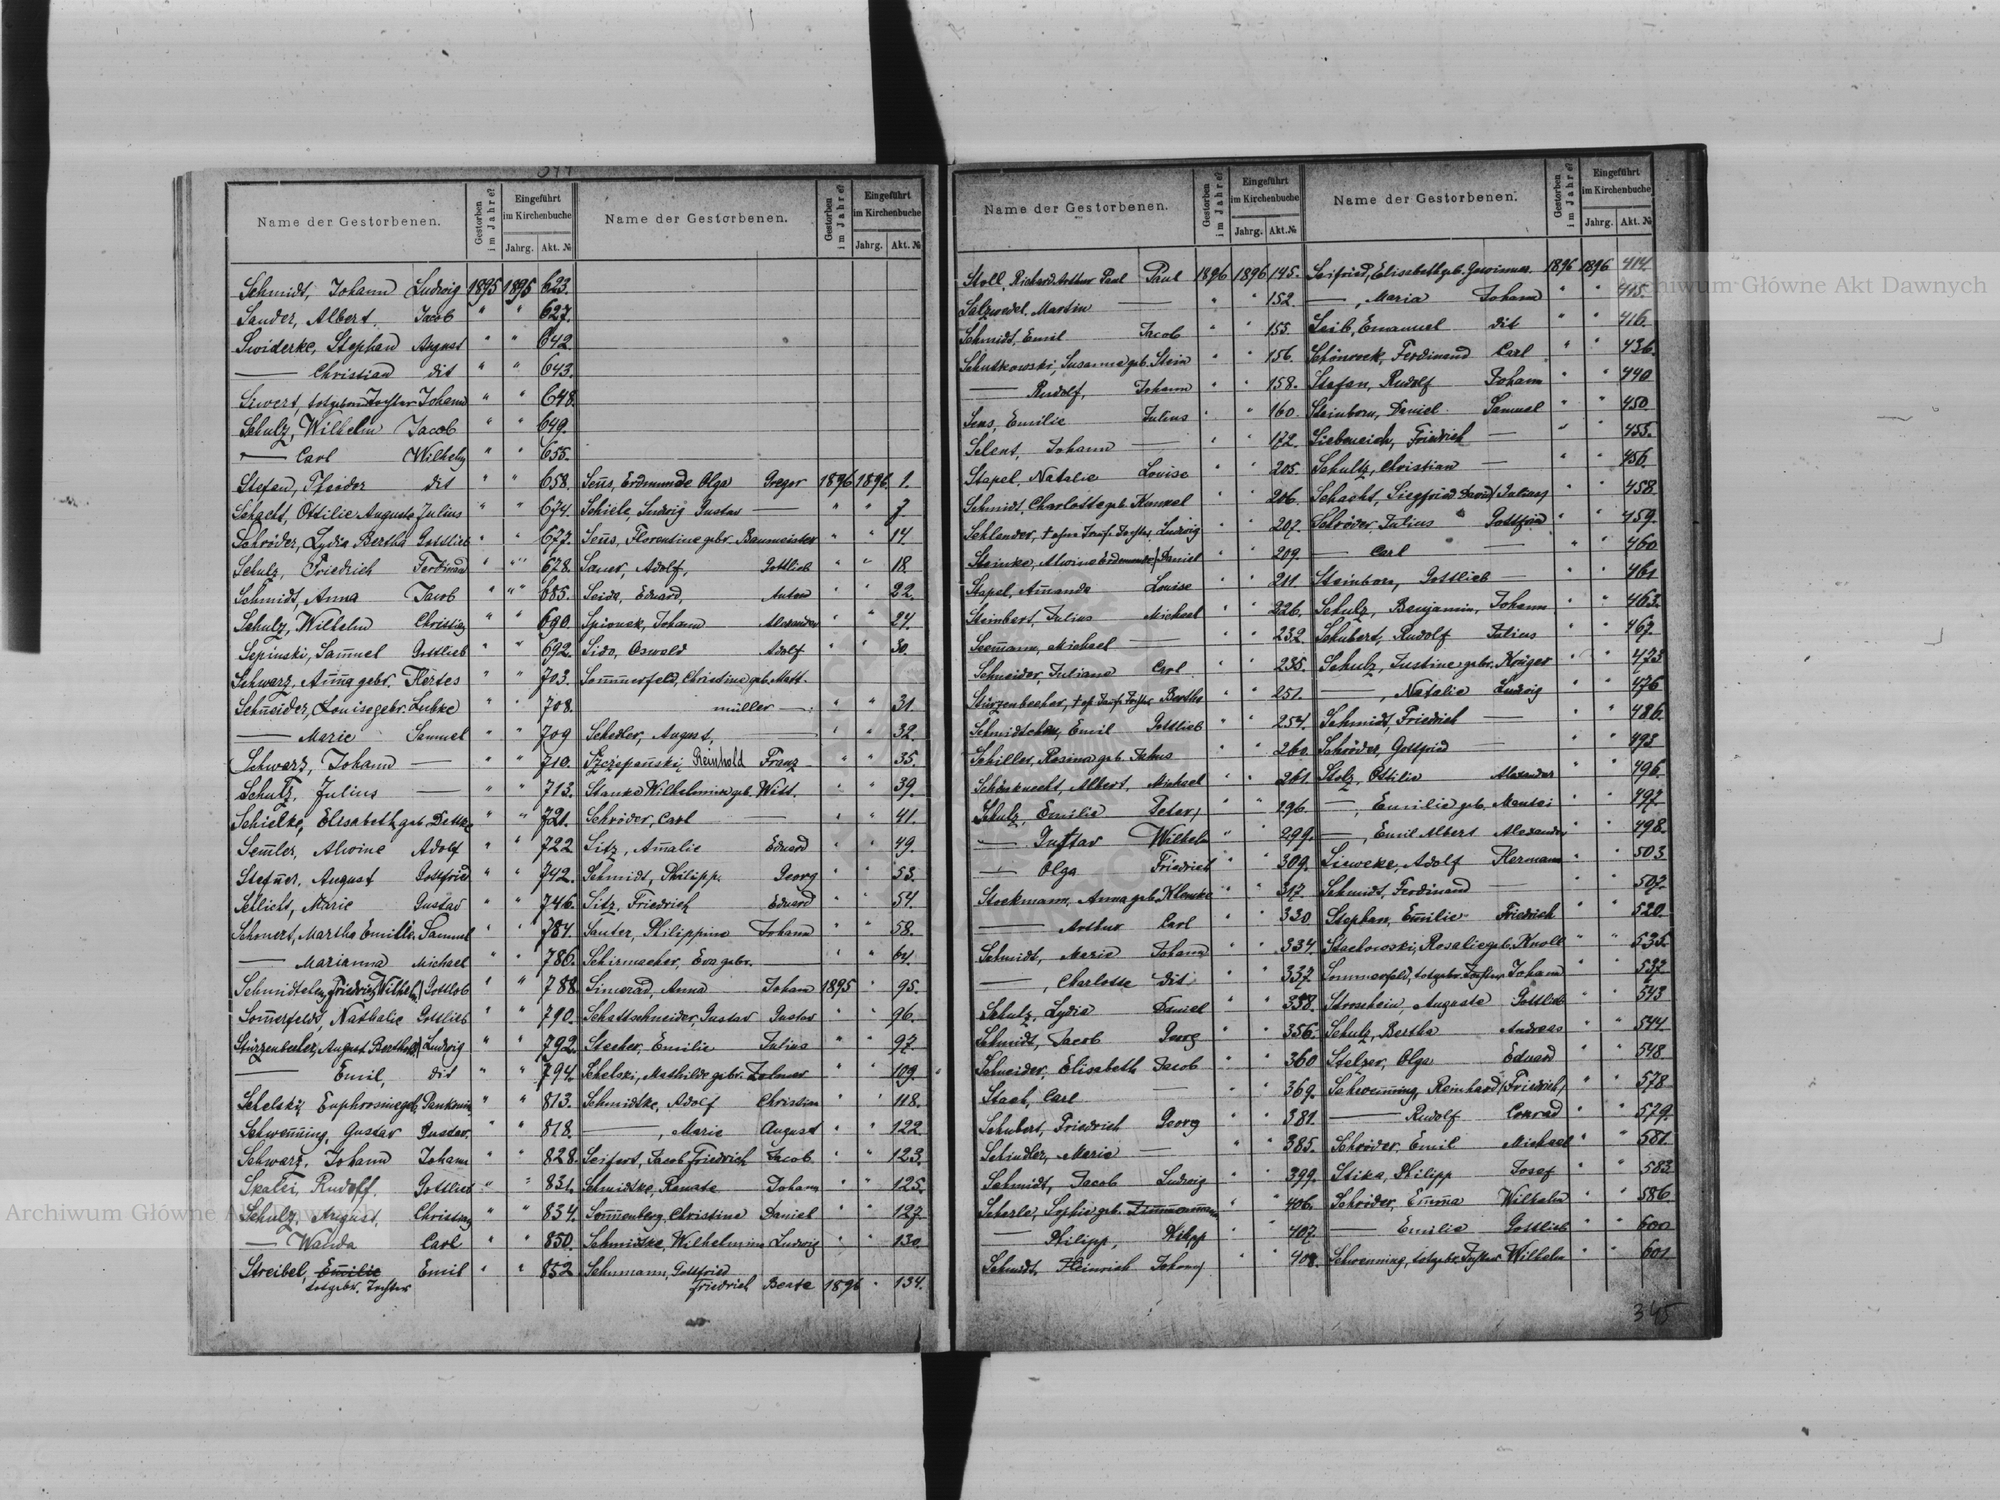 344
Name der Gestorbenen.
Gestorben im Jahre?
Eingeführt im Kirchenbuche
Jahrg. Akt. №
Schmidt, Johann Ludwig 1895 1895 623.
Sander, Albert, Jacob " " 627.
Swiderke, Stephan August " " 642
— Christian dit " " 643.
Siwert, totgeborn Tochter Johann " " 648.
Schulz, Wilhelm Jacob " " 649.
— Carl Wilhelm " " 655.
Stefan, Theodor dit " " 658.
Schacht, Ottilie Auguste Julius " " 674.
Schröder, Lydia Bertha Gottlieb " " 677.
Schulz, Friedrich Ferdinand " " 678.
Schmidt, Anna Jacob " " 685.
Schulz, Wilhelm Christian " " 690.
Sepinski, Samuel Gottlieb " " 692.
Schwarz, Anna gebr. Hertes " " 703.
Schneider, Louise gebr. Lubke " " 708.
— Marie Samuel " " 709
Schwarz, Johann — " " 710.
Schulz, Julius — " " 713.
Schielke, Elisabeth geb. Dettke " " 721.
Semler, Alwine Adolf " " 722
Stefner, August Gottfried " " 742.
Schlicht, Marie Gustav " " 746.
Schmert, Martha Emilie Samuel " " 784.
— Marianna Michael " " 786.
Schmidtchen, Friedrich Wilhelm Gottlob " " 788
Sommerfeld, Nathalie Gottlieb " " 790.
Stürzenbecher, August Berthold Ludwig " " 792.
— Emil, dit " " 794.
Schelski, Euphrosine geb. Pankonin " " 813.
Schwenning, Gustav Gustav. " " 818.
Schwarz, Johann Johann " " 828.
Skalei, Rudolf Gottlieb " " 831.
Schulz, August, Christian " " 834.
— Wanda Carl " " 850.
Streibel, Emilie Emil " " 852
totgebr. Tochter
Name der Gestorbenen.
Gestorben im Jahre?
Eingeführt im Kirchenbuche
Jahrg. Akt. №
Sens, Erdmunde Olga Gregor 1896 1896 1.
Schiele, Ludwig Gustav — " " 7
Senss, Florentine gebr. Baumeister " " 14.
Sauer, Adolf, Gottlieb " " 18.
Seide, Eduard, Anton " " 22.
Spionek, Johann Alexander " " 24.
Sido, Oswald Adolf " " 30.
Sommerfeld, Christine geb. Matt-
müller — " " 31.
Schedler, August, — " " 32.
Szczepański, Reinhold Franz " " 35.
Stanke Wilhelmine geb. Witt. " " 39.
Schröder, Carl — " " 41.
Sitz, Amalie Eduard " " 49.
Schmidt, Philipp. Georg " " 53.
Sitz, Friedrich Eduard " " 54.
Sauter, Philippine Johann " " 58.
Schirmacher, Eva gebr. — " " 64.
Simerad, Anna Johann 1895 " 95.
Schattschneider, Gustav Gustav " " 96.
Stecher, Emilie Julius " " 97.
Schelski, Mathilde gebr. " " 109.
Schmidtke, Adolf Christian " " 118.
—, Marie August " " 122
Seifert, Jacob Friedrich Jacob " " 123.
Schmidtke, Renate Johann " " 125.
Sonnenberg, Christine Daniel " " 127.
Schmidtke, Wilhelmine Ludwig " " 130.
Schumann, Gottfried
Friedrich Beate 1896 " 134.
Name der Gestorbenen.
Gestorben im Jahre?
Eingeführt im Kirchenbuche
Jahrg. Akt. №
Stoll, Richard Arthur Paul Paul 1896 1896 145.
Salzwedel, Martin — " " 152.
Schmidt, Emil Jacob " " 155.
Schutkowski, Susanne geb. Stein " " 156.
— Rudolf, Johann " " 158.
Sens, Emilie Julius " " 160.
Selent, Johann — " " 172.
Stapel, Natalie Louise " " 205.
Schmidt, Charlotte geb. " " 206.
Schlender, † ohne Taufe Tochter Ludwig " " 207.
Steinke, Alwine Erdmunde Daniel " " 209.
Stapel, Amanda Louise " " 211.
Steinbert, Julius Michael " " 226.
Seemann, Michael — " " 232.
Schneider, Juliane Carl " " 235.
Stürzenbecher, † oh. Taufe Tochter Bertha " " 251.
Schmidtchen, Emil Gottlieb " " 254.
Schiller, Rosine geb. " " 260.
Schönknecht, Albert, Michael " " 261.
Schulz, Emilie Peter " " 296.
— Gustav Wilhelm " " 299.
— Olga Friedrich " " 309.
Stockmann, Anna geb. " " 317.
— Arthur Carl " " 330
Schmidt, Marie Johann " " 334.
—, Charlotte dit " " 337
Schulz, Lydia Daniel " " 338.
Schmidt, Jacob Georg " " 356.
Schneider, Elisabeth Jacob " " 360
Stach, Carl — " " 369.
Schubert, Friedrich Georg " " 381.
Schindler, Marie — " " 385.
Schmidt, Jacob Ludwig " " 399.
Scherle, Sophie geb. Zimmermann " " 406.
— Philipp, Philipp " " 407.
Schmidt, Heinrich Johann " " 408.
Name der Gestorbenen.
Gestorben im Jahre?
Eingeführt im Kirchenbuche
Jahrg. Akt. №
Seifried, Elisabeth geb. 1896 1896 414.
—, Maria Johann " " 415.
Seib, Emanuel dit " " 416.
Schönrock, Ferdinand Carl " " 436.
Stefan, Rudolf Johann " " 440
Steinborn, Daniel Samuel " " 450
Siebeneich, Friedrich — " " 455.
Schultz, Christian — " " 456.
Schacht, Siegfried David Julius " " 458
Schröder, Julius Gottfried " " 459.
— Carl — " " 460
Steinborn, Gottlieb — " " 461
Schulz, Benjamin, Johann " " 463.
Schubert, Rudolf Julius " " 467.
Schulz, Justine gebr. Krüger " " 473
—, Natalie Ludwig " " 476
Schmidt, Friedrich — " " 486.
Schröder, Gottfried — " " 493
Stolz, Ottilie Alexander " " 496.
— Emilie geb. " " 497.
—, Emil Albert Alexander " " 498.
Lieweke, Adolf Hermann " " 503
Schmidt, Ferdinand — " " 507.
Stephan, Emilie Friedrich " " 520.
Stachowski, Rosalie geb. Knoll " " 535.
Sommerfeld, totgebr. Tochter Johann " " 537
Stroschein, Auguste Gottlieb " " 543
Schulz, Bertha Andreas " " 544
Stelzer, Olga Eduard " " 548
Schwenning, Reinhard Friedrich " " 578
— Rudolf Conrad " " 579.
Schröder, Emil Michael " " 581
Stike, Philipp Josef " " 583
Schröder, Emma Wilhelm " " 586
— Emilie Gottlieb " " 600
Schwenning, totgebr. Tochter Wilhelm " " 601
345
Archiwum Główne Akt Dawnych
Archiwum Główne Akt Dawnych